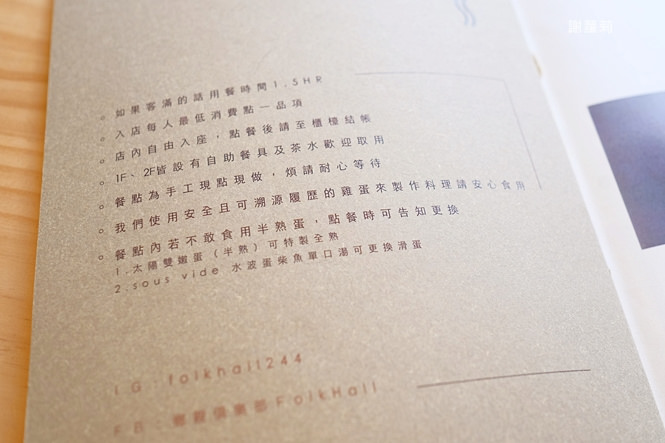 。如果客滿的話用餐時間1.5HR
。入店每人最低消費點一品項
。店內自由入座,點餐後請至櫃檯結帳
。1F、2F皆設有自助餐具及茶水歡迎取用
。餐點為手工現點現做,煩請耐心等待
。我們使用安全且可溯源履歷的雞蛋來製作料理請安心食用
。餐點內若不敢食用半熟蛋,點餐時可告知更換
1.太陽雙嫩蛋(半熟)可特製全熟
2.sous vide 水波蛋柴魚單口湯可更換滑蛋
IG:folkhall244
FB:鄉穀俱樂部FolkHall